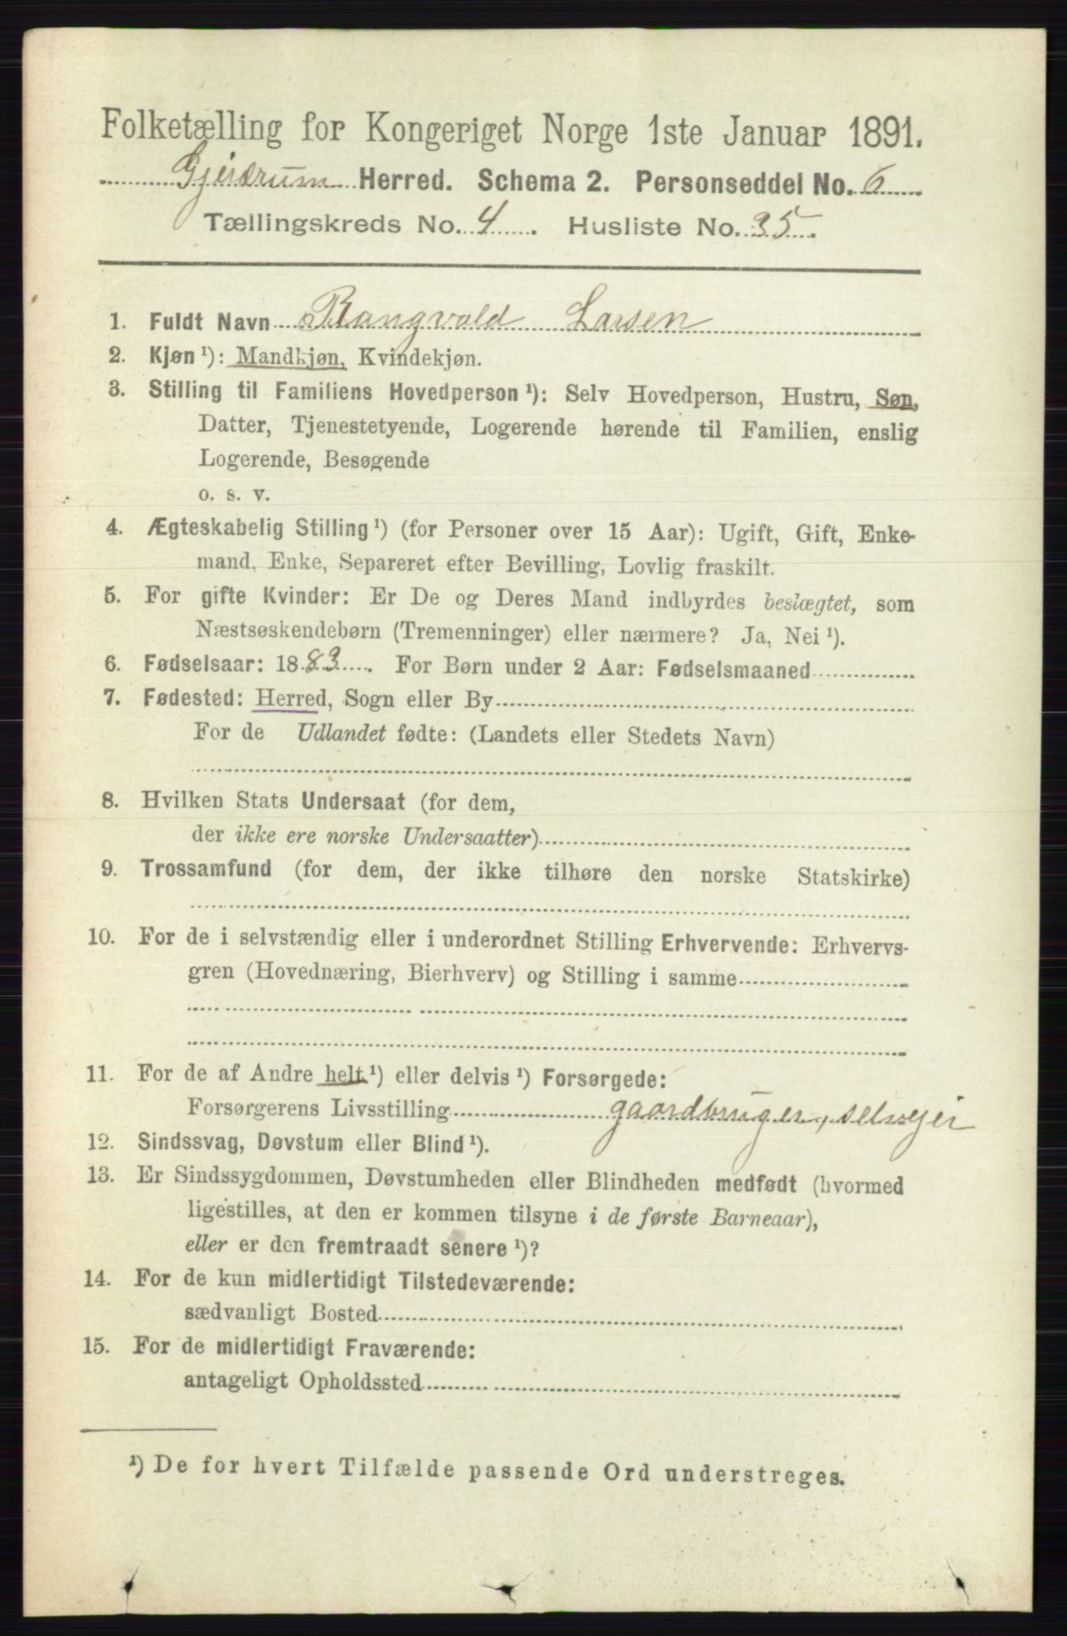 Folketælling for Kongeriget Norge 1ste Januar 1891.
Gjerdrum Herred. Schema 2. Personseddel No. 6
Tællingskreds No. 4. Husliste No. 35.
1. Fuldt Navn Rangvald Larsen
2. Kjøn ¹): Mandkjøn, Kvindekjøn.
3. Stilling til Familiens Hovedperson ¹): Selv Hovedperson, Hustru, Søn,
Datter, Tjenestetyende, Logerende hørende til Familien, enslig
Logerende, Besøgende
o. s. v.
4. Ægteskabelig Stilling ¹) (for Personer over 15 Aar): Ugift, Gift, Enke-
mand, Enke, Separeret efter Bevilling, Lovlig fraskilt.
5. For gifte Kvinder: Er De og Deres Mand indbyrdes beslægtet, som
Næstsøskendebørn (Tremenninger) eller nærmere? Ja, Nei ¹).
6. Fødselsaar: 1883. For Børn under 2 Aar: Fødselsmaaned
7. Fødested: Herred, Sogn eller By
For de Udlandet fødte: (Landets eller Stedets Navn)
8. Hvilken Stats Undersaat (for dem,
der ikke ere norske Undersaatter)
9. Trossamfund (for dem, der ikke tilhøre den norske Statskirke)
10. For de i selvstændig eller i underordnet Stilling Erhvervende: Erhvervs-
gren (Hovednæring, Bierhverv) og Stilling i samme
11. For de af Andre helt ¹) eller delvis ¹) Forsørgede:
Forsørgerens Livsstilling gaardbruger, selvejer
12. Sindssvag, Døvstum eller Blind ¹).
13. Er Sindssygdommen, Døvstumheden eller Blindheden medfødt (hvormed
ligestilles, at den er kommen tilsyne i de første Barneaar),
eller er den fremtraadt senere ¹)?
14. For de kun midlertidigt Tilstedeværende:
sædvanligt Bosted
15. For de midlertidigt Fraværende:
antageligt Opholdssted
¹) De for hvert Tilfælde passende Ord understreges.